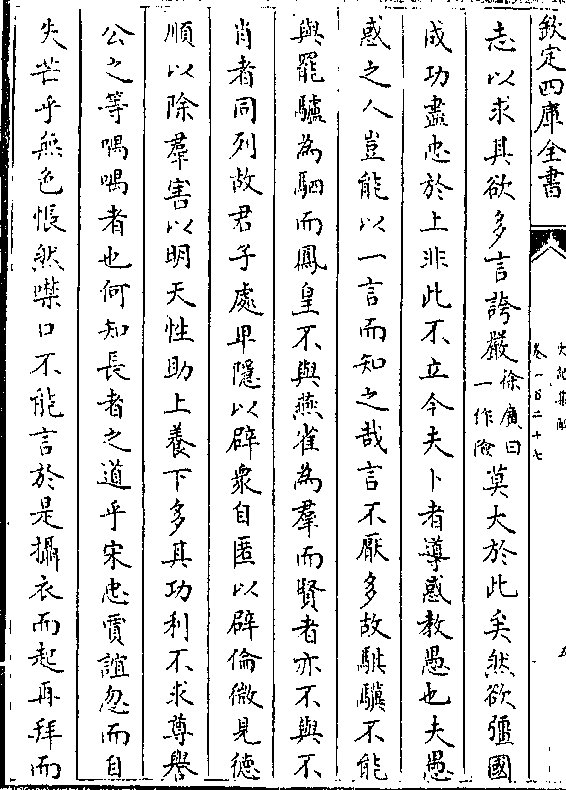 欽定四庫全書
史記集解
卷一百二十七
五
志以求其欲多言誇嚴徐廣曰一作險莫大於此矣然欲彊國
成功盡忠於上非此不立今夫卜者導惑教愚也夫愚
惑之人豈能以一言而知之哉言不厭多故騏驥不能
與罷驢為駟而鳳皇不與燕雀為羣而賢者亦不與不
肖者同列故君子處卑隱以辟衆自匿以辟倫微見德
順以除羣害以明天性助上養下多其功利不求尊譽
公之等喁喁者也何知長者之道乎宋忠賈誼忽而自
失芒乎無色悵然噤口不能言於是攝衣而起再拜而